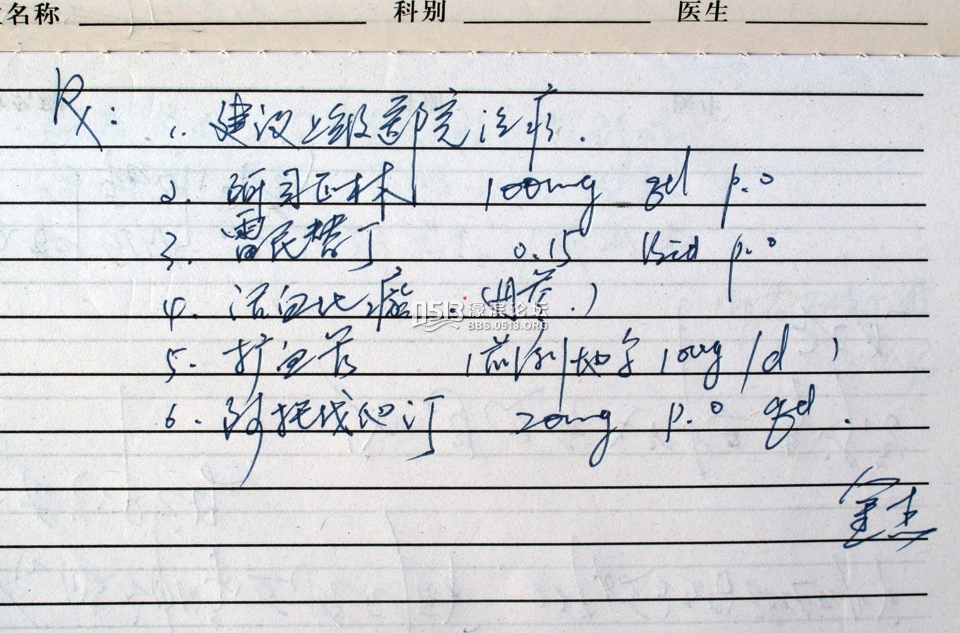 名称 科别 医生
Rx:
1. 建议上级医院治疗.
2. 阿司匹林 100mg qd p.o
3. 雷尼替丁 0.15 Bid p.o
4. 活血化瘀 (丹参.)
5. 扩血管 (前列地尔 10ug/d)
6. 阿托伐他汀 20mg p.o qd.
0513 濠滨论坛
BBS.0513.ORG